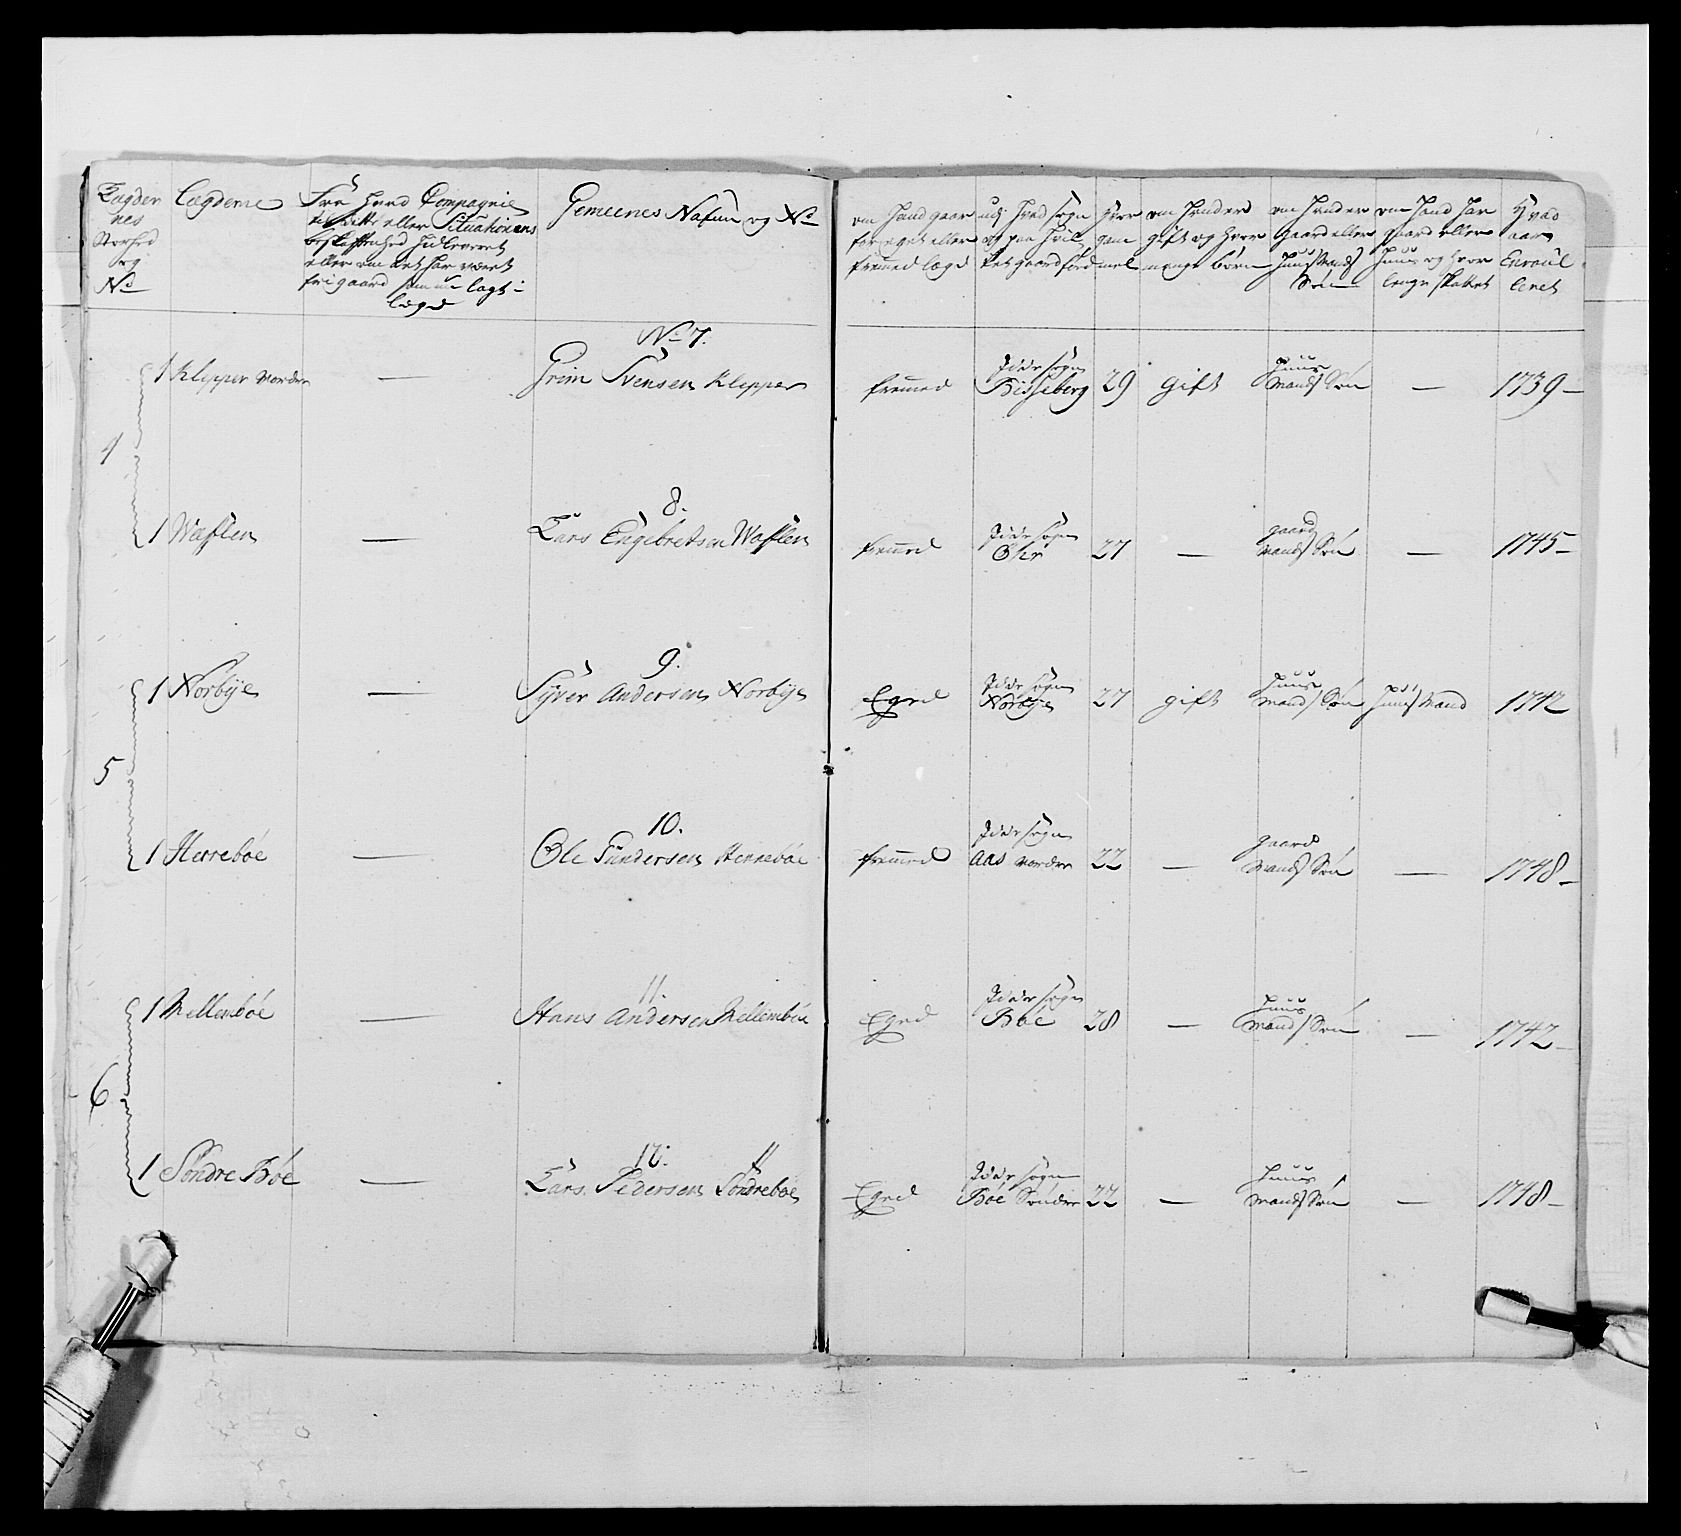 Lægder
nes
Storhed
og
No
Lægderne
Fra hvad Compagnie
eller Situationens
beskaffenhed
eller om det har været
fri gaard som nu lagt i
lægd
Gemeenes Nafun og No
om hand gaar
for eget eller
fremmed lægd
udj hvad sogn
og paa hvil
ket gaard född
hvor
gam
mel
om hand er
gift og hvor
mange börn
om hand er
gaard eller
huusmands
Sön
om hand har
gaard eller
huus og hvor
lenge skattet
Hvad
aar
Enroul
leret
No 7.
4
1 Klepper nordre — Grim Svensen Klepper fremed Idde sogn Bisseberg 29 gift huus mands Sön — 1739 —
8.
1 Wasflen — Lars Engebretsen Wasflen fremed Idde sogn Ohr 27 — gaard mands Sön — 1745 —
9.
5
1 Norbÿe — Syver Andersen Norbÿe Egned Idde sogn Norbÿe 27 gift huus mands Sön huusmand 1742
10.
1 Herreböe — Ole Gundersen Herreböe fremed Idde sogn Aas nordre 22 — gaard mands Sön — 1748 —
11.
6
1 Mellemböe — Hans Andersen Mellemböe Egned Idde sogn Böe 28 — huus mands Sön — 1742 —
12.
1 Söndre Böe — Lars Pedersen Söndreböe Egned Idde sogn Böe Söndre 22 — huus mands Sön — 1748 —